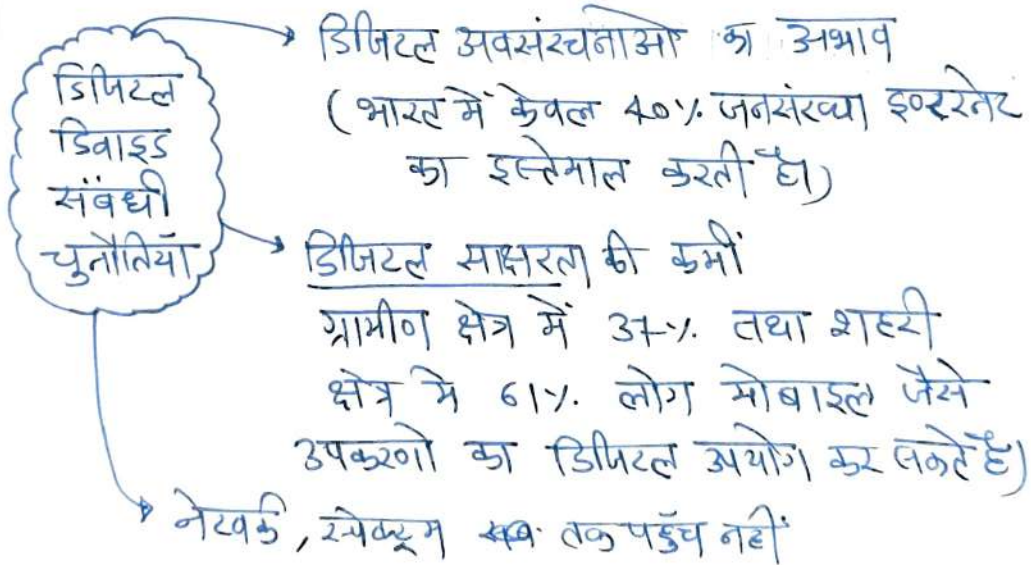 डिजिटल
डिवाइड
संबंधी
चुनौतियाँ
डिजिटल अवसंरचनाओं का अभाव
(भारत में केवल 40% जनसंख्या इण्टरनेट
का इस्तेमाल करती है।)
डिजिटल साक्षरता की कमीं
ग्रामीण क्षेत्र में 37% तथा शहरी
क्षेत्र मे 61% लोग मोबाइल जैसे
उपकरणो का डिजिटल उपयोग कर सकते है)
नेटवर्क, स्पेक्ट्रम तक पहुँच नहीं